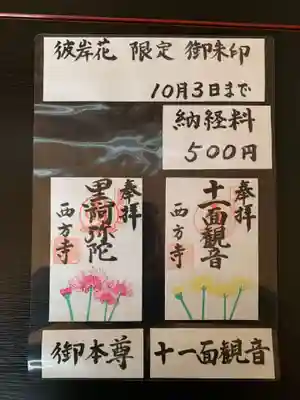 彼岸花 限定 御朱印
10月3日まで
納経料
500円
奉拝
黒阿弥陀
西方寺
奉拝
十一面観音
西方寺
御本尊
十一面観音